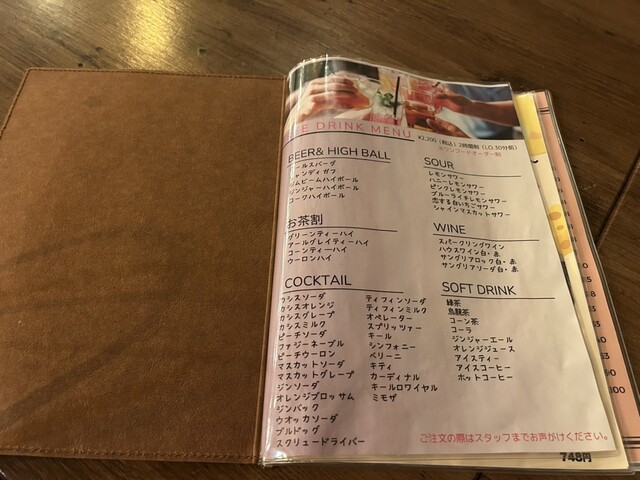 DRINK MENU
¥2,200（税込）2時間制（LO.30分前）
※ワンフードオーダー制
BEER& HIGH BALL
シャンディガフ
ジムビームハイボール
ジンジャーハイボール
コークハイボール
お茶割
グリーンティーハイ
アールグレイティーハイ
コーンティーハイ
ウーロンハイ
COCKTAIL
カシスソーダ
カシスオレンジ
カシスグレープ
カシスミルク
ピーチソーダ
ファジーネーブル
ピーチウーロン
マスカットソーダ
マスカットグレープ
ジンソーダ
オレンジブロッサム
ジンバック
ウオッカソーダ
ブルドッグ
スクリュードライバー
ティフィンソーダ
ティフィンミルク
オペレーター
スプリッツァー
キール
シンフォニー
ベリーニ
キティ
カーディナル
キールロワイヤル
ミモザ
SOUR
レモンサワー
ハニーレモンサワー
ピンクレモンサワー
ブルーライチレモンサワー
恋する白いちごサワー
シャインマスカットサワー
WINE
スパークリングワイン
ハウスワイン白・赤
サングリアロック白・赤
サングリアソーダ白・赤
SOFT DRINK
緑茶
烏龍茶
コーン茶
コーラ
ジンジャーエール
オレンジジュース
アイスティー
アイスコーヒー
ホットコーヒー
ご注文の際はスタッフまでお声がけください。
748円